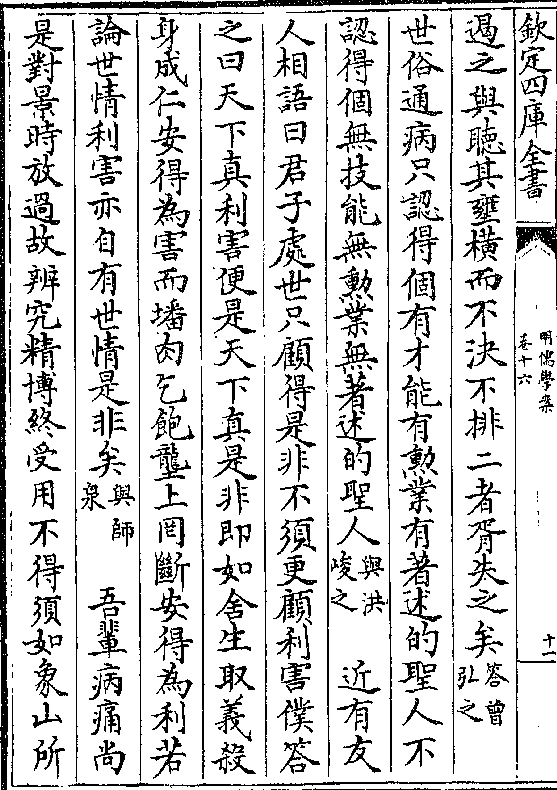 欽定四庫全書
明儒學案
卷十六
十一
遏之與聽其壅橫而不決不排二者胥失之矣答曾弘之
世俗通病只認得個有才能有勲業有著述的聖人不
認得個無技能無勲業無著述的聖人與洪峻之 近有友
人相語曰君子處世只顧得是非不須更顧利害僕答
之曰天下真利害便是天下真是非即如舍生取義殺
身成仁安得為害而墦肉乞飽壟上罔斷安得為利若
論世情利害亦自有世情是非矣與師泉 吾輩病痛尚
是對景時放過故辨究精博終受用不得須如象山所